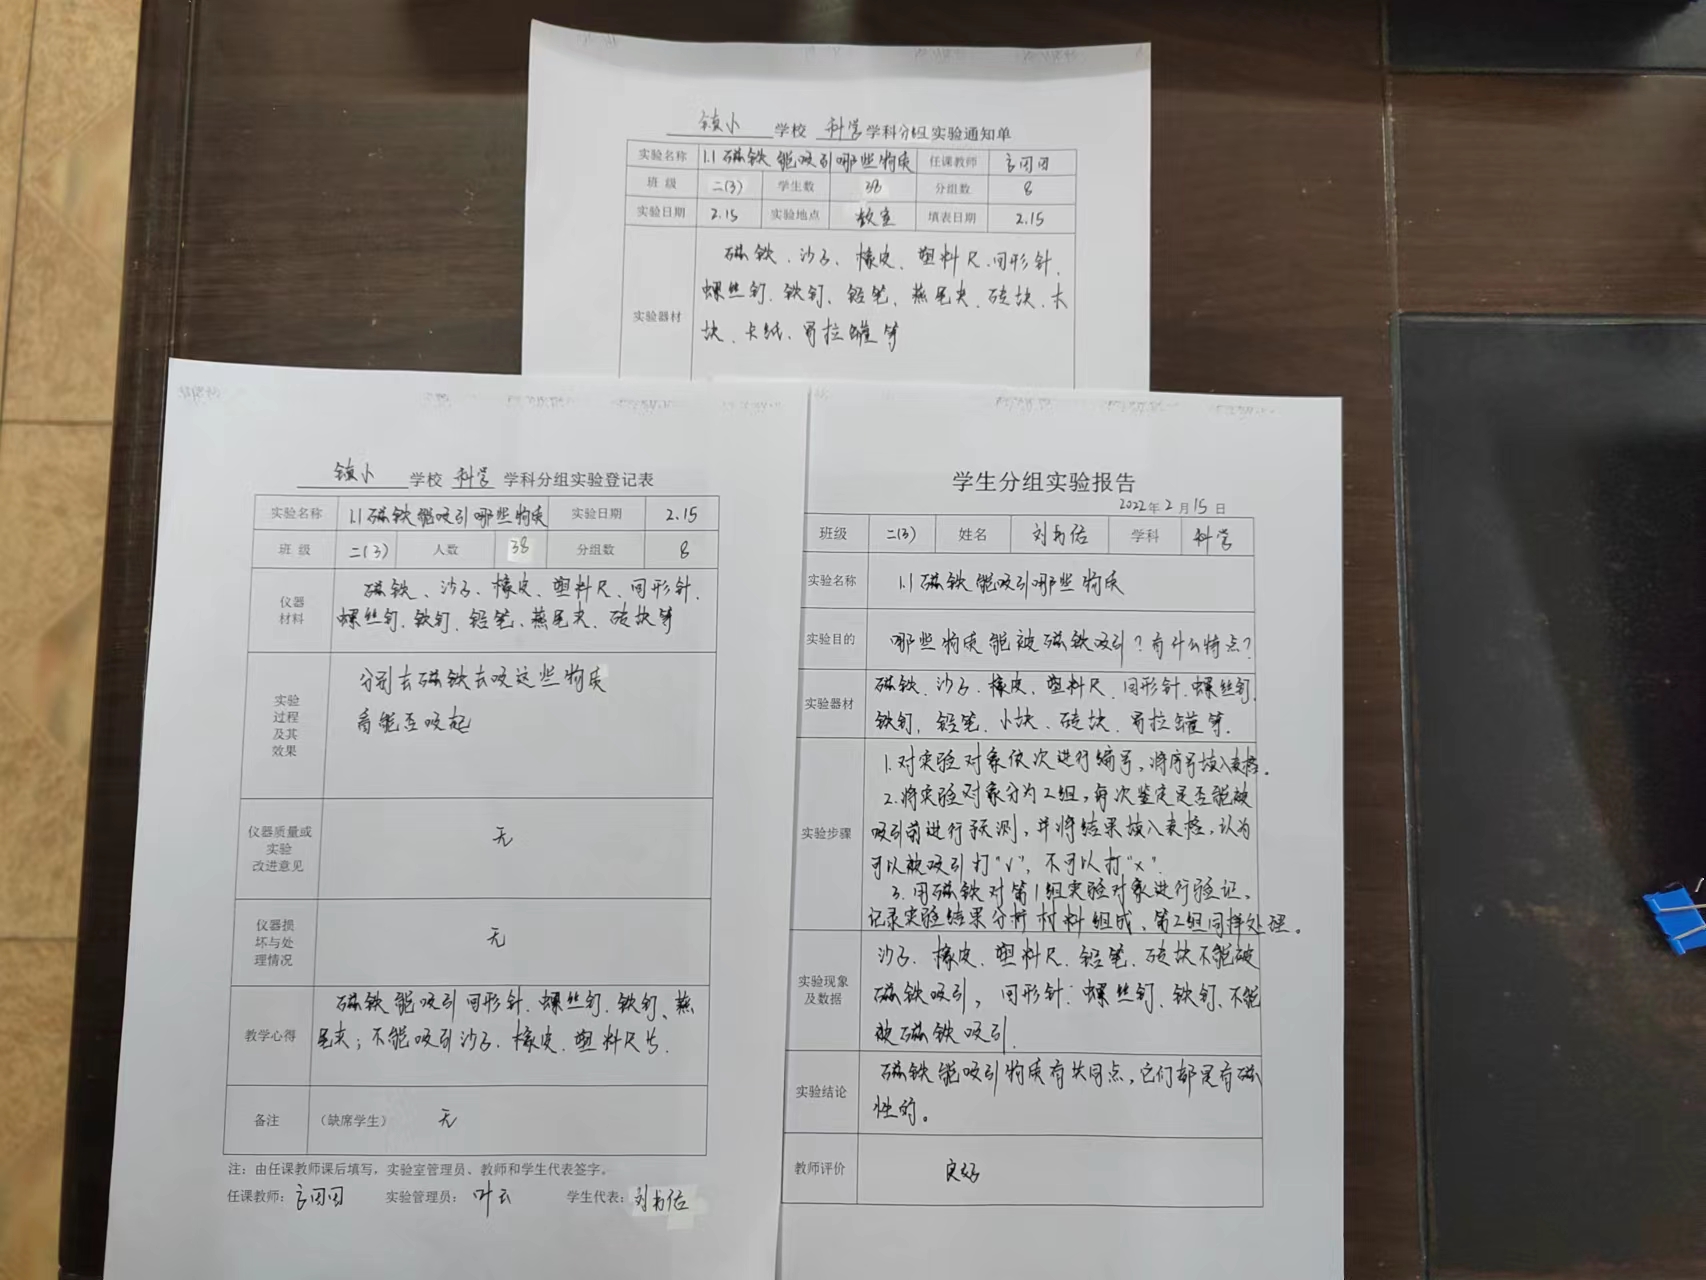 镇小 学校 科学 学科分组实验通知单
实验名称 1.1 磁铁能吸引哪些物质 任课教师
班 级 二(3) 学生数 38 分组数 8
实验日期 2.15 实验地点 教室 填表日期 2.15
实验器材
磁铁、沙子、橡皮、塑料尺、回形针、
螺丝钉、铁钉、铅笔、燕尾夹、砖块、木
块、卡纸、易拉罐等
镇小 学校 科学 学科分组实验登记表
实验名称 1.1 磁铁能吸引哪些物质 实验日期 2.15
班 级 二(3) 人数 38 分组数 8
仪器
材料
磁铁、沙子、橡皮、塑料尺、回形针、
螺丝钉、铁钉、铅笔、燕尾夹、砖块等
实验
过程
及其
效果
分别去磁铁去吸这些物质
看能否吸起
仪器质量或
实验
改进意见
无
仪器损
坏与处
理情况
无
教学心得
磁铁能吸引回形针、螺丝钉、铁钉、燕
尾夹；不能吸引沙子、橡皮、塑料尺等.
备注 （缺席学生） 无
注：由任课教师课后填写，实验室管理员、教师和学生代表签字。
任课教师： 实验管理员：叶云 学生代表：刘书佑
学生分组实验报告
2022年2月15日
班级 二(3) 姓名 刘书佑 学科 科学
实验名称 1.1 磁铁能吸引哪些物质
实验目的 哪些物质能被磁铁吸引？有什么特点？
实验器材
磁铁、沙子、橡皮、塑料尺、回形针、螺丝钉、
铁钉、铅笔、小块、砖块、易拉罐等.
实验步骤
1.对实验对象依次进行编号，将序号填入表格。
2.将实验对象分为2组，每次鉴定是否能被
吸引前进行预测，并将结果填入表格，认为
可以被吸引打“√”，不可以打“×”
3.用磁铁对第1组实验对象进行验证，
记录实验结果分析材料组成，第2组同样处理。
实验现象
及数据
沙子、橡皮、塑料尺、铅笔、砖块不能被
磁铁吸引，回形针、螺丝钉、铁钉、不能
被磁铁吸引.
实验结论
磁铁能吸引物质有共同点，它们都是有磁
性的。
教师评价 良好